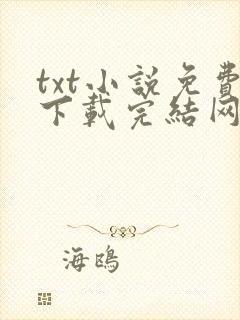 txt小說免費
下載完結网
海鴎